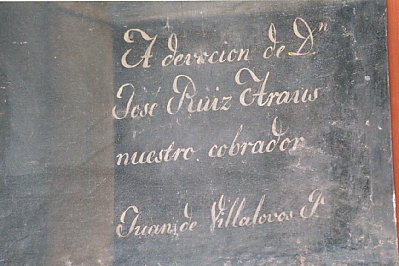 A devocion de Dn
José Ruiz Araus
nuestro cobrador
Juan de Villalovos